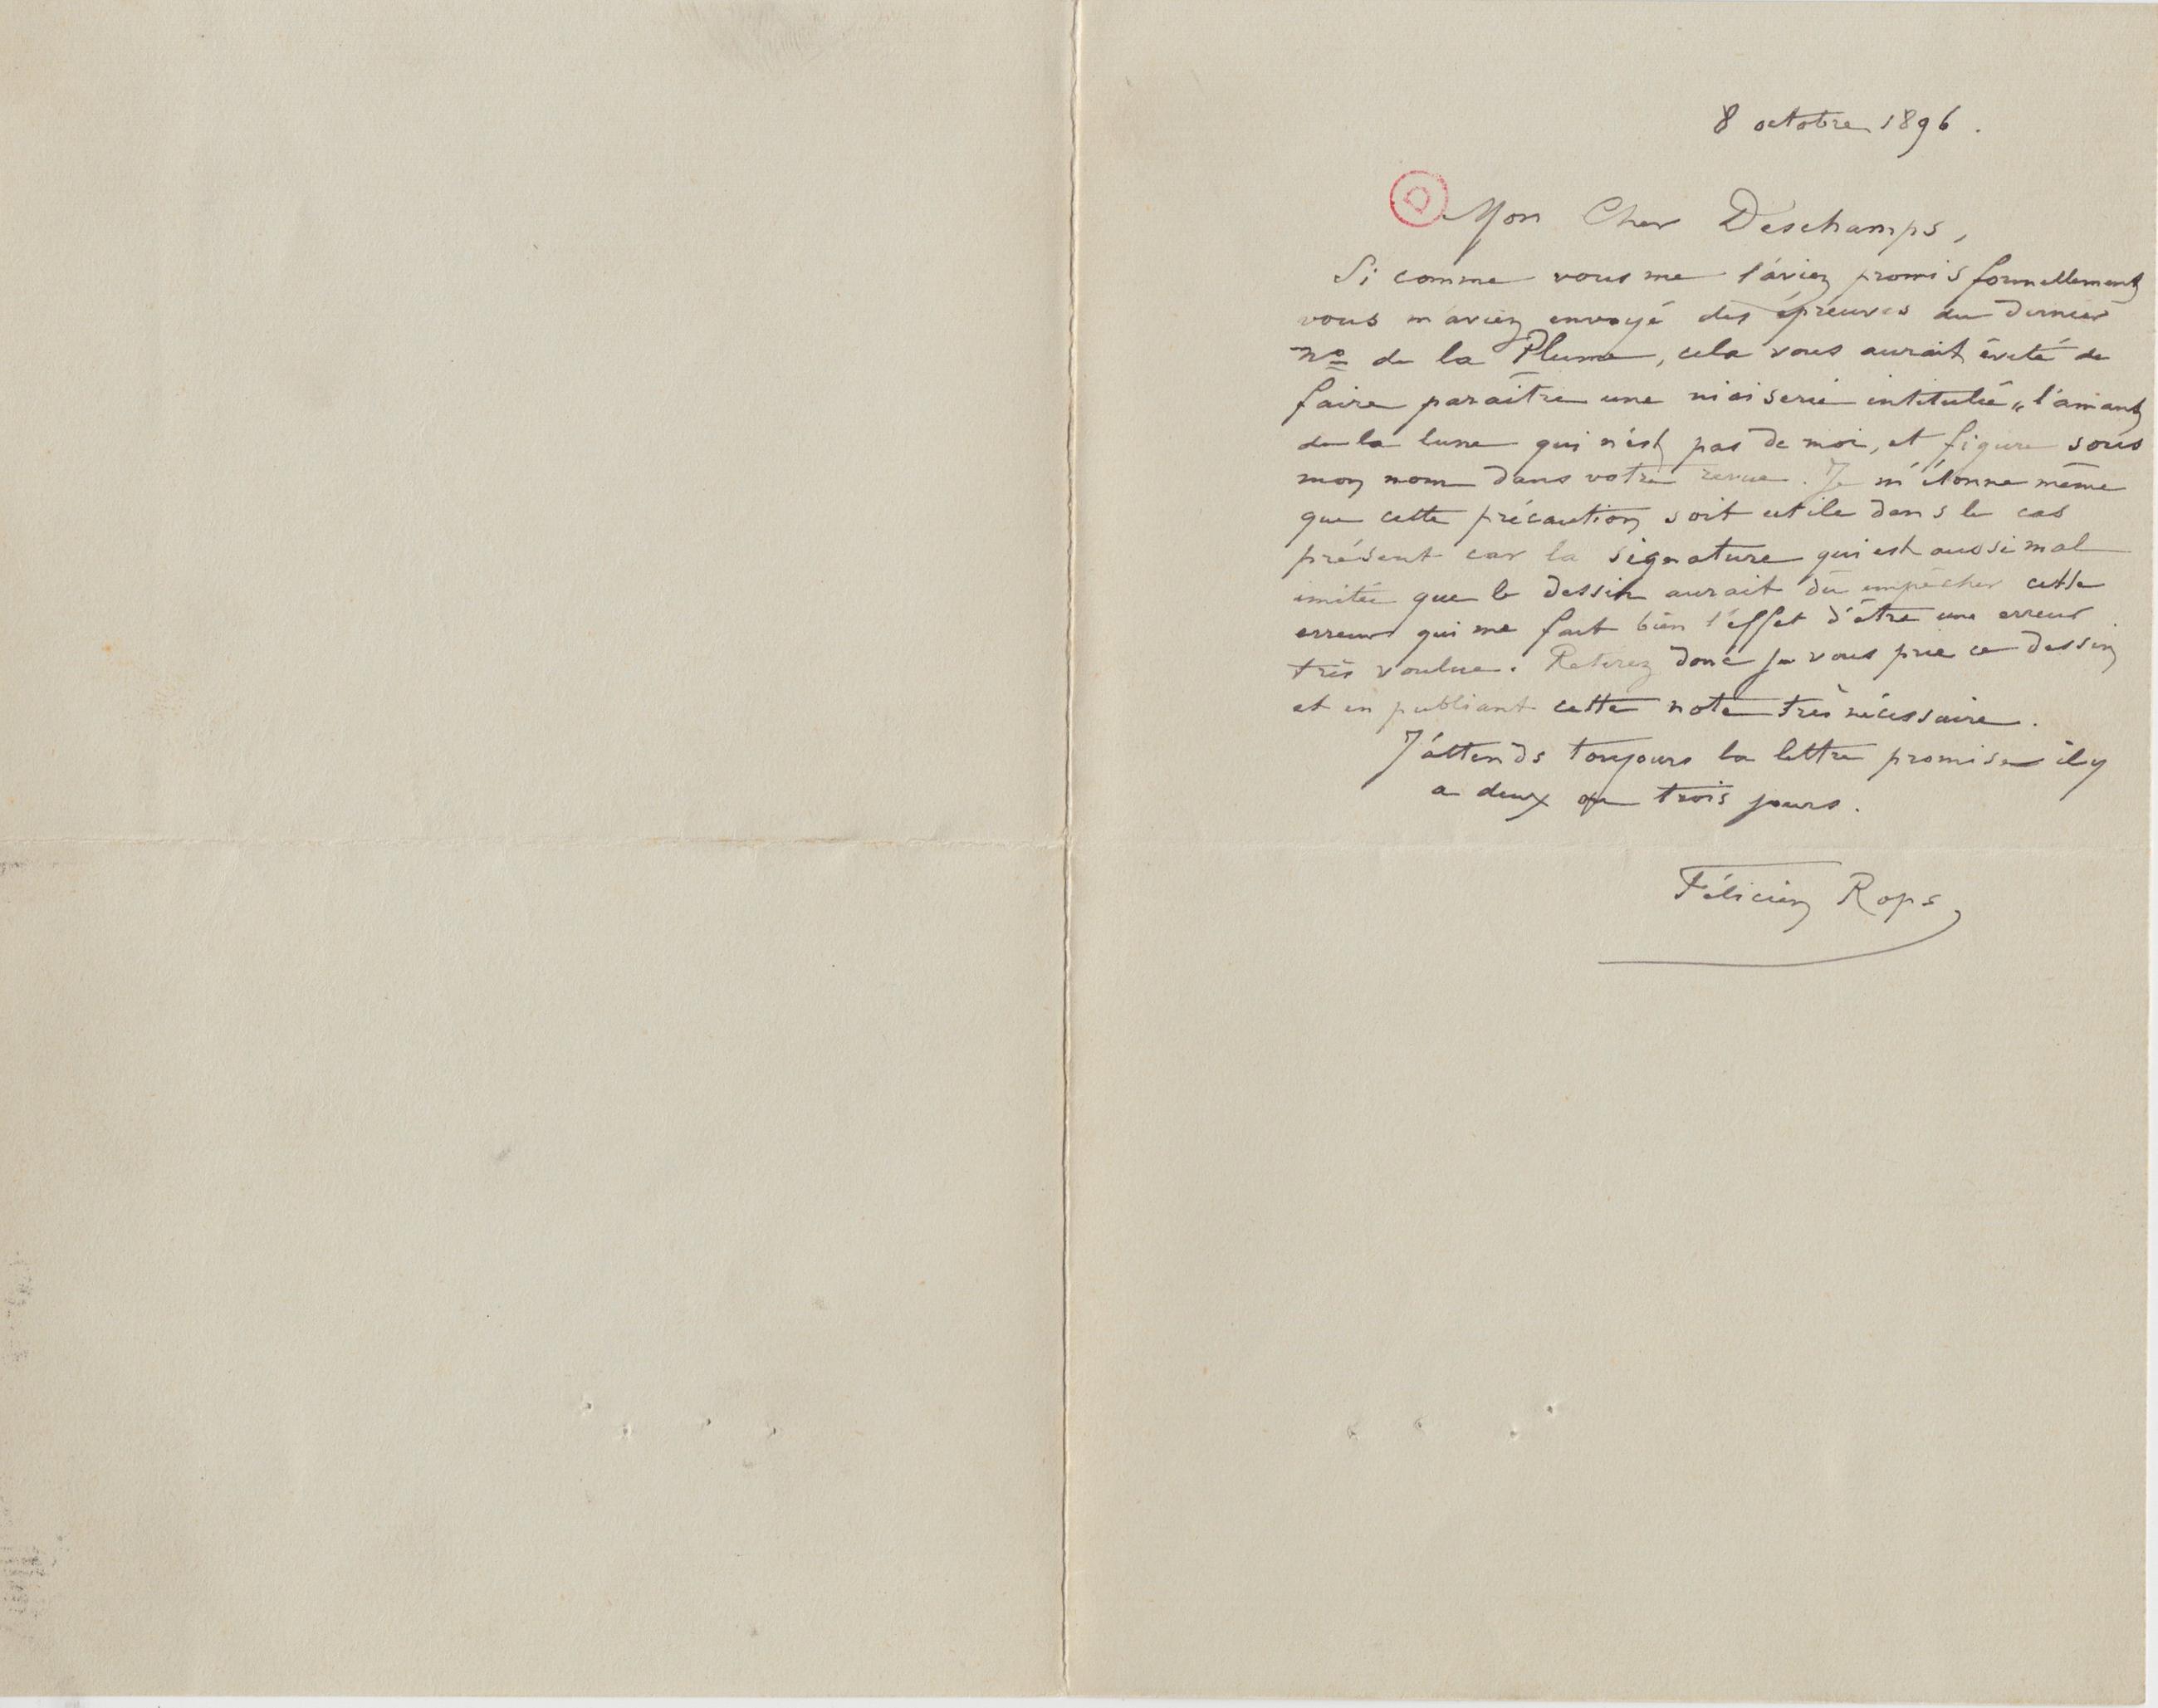 8 octobre 1896.
Mon Cher Deschamps,
Si comme vous me l'aviez promis formellement
vous m'aviez envoyé des épreuves du dernier
nº de la Plume, cela vous aurait évité de
faire paraître une niaiserie intitulée „l'amant
de la lune qui n'est pas de moi, et figure sous
mon nom dans votre revue. Je m'étonne même
que cette précaution soit utile dans le cas
présent car la signature qui est aussi mal
imitée que le dessin aurait dû empêcher cette
erreur qui me fait bien l'effet d'être une erreur
très voulue. Retirez donc je vous prie ce dessin
et en publiant cette note très nécessaire.
J'attends toujours la lettre promise il y
a deux ou trois jours.
Félicien Rops